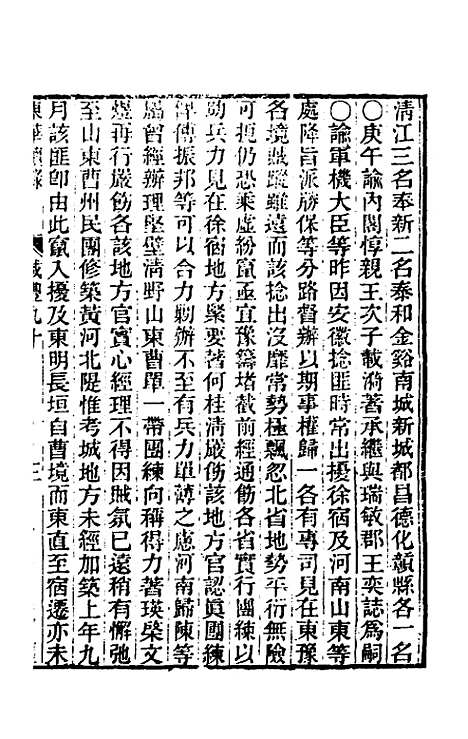 清江三名奉新二名泰和金谿南城新城都昌德化贛縣各一名
○庚午諭內閣惇親王次子載漪著承繼與瑞敏郡王奕誌為嗣
○諭軍機大臣等昨因安徽捻匪時常出擾徐宿及河南山東等
處降旨派勝保等分路督辦以期事權歸一各有專司見在東豫
各境賊蹤雖遠而該捻出沒靡常勢極飄忽北省地勢平衍無險
可扼仍恐乘虛紛竄亟宜豫籌堵截前經通飭各省實行團練以
助兵力見在徐宿地方緊要著何桂清嚴飭該地方官認眞團練
俾傅振邦等可以合力剿辦不至有兵力單薄之慮河南歸陳等
屬曾經辦理堅壁清野山東曹單一帶團練向稱得力著瑛棨文
煜再行嚴飭各該地方官實心經理不得因賊氛已遠稍有懈弛
至山東曹州民團修築黃河北隄惟考城地方未經加築上年九
月該匪卽由此竄入擾及東明長垣自曹境而東直至宿遷亦未
東華續錄 咸豐九十